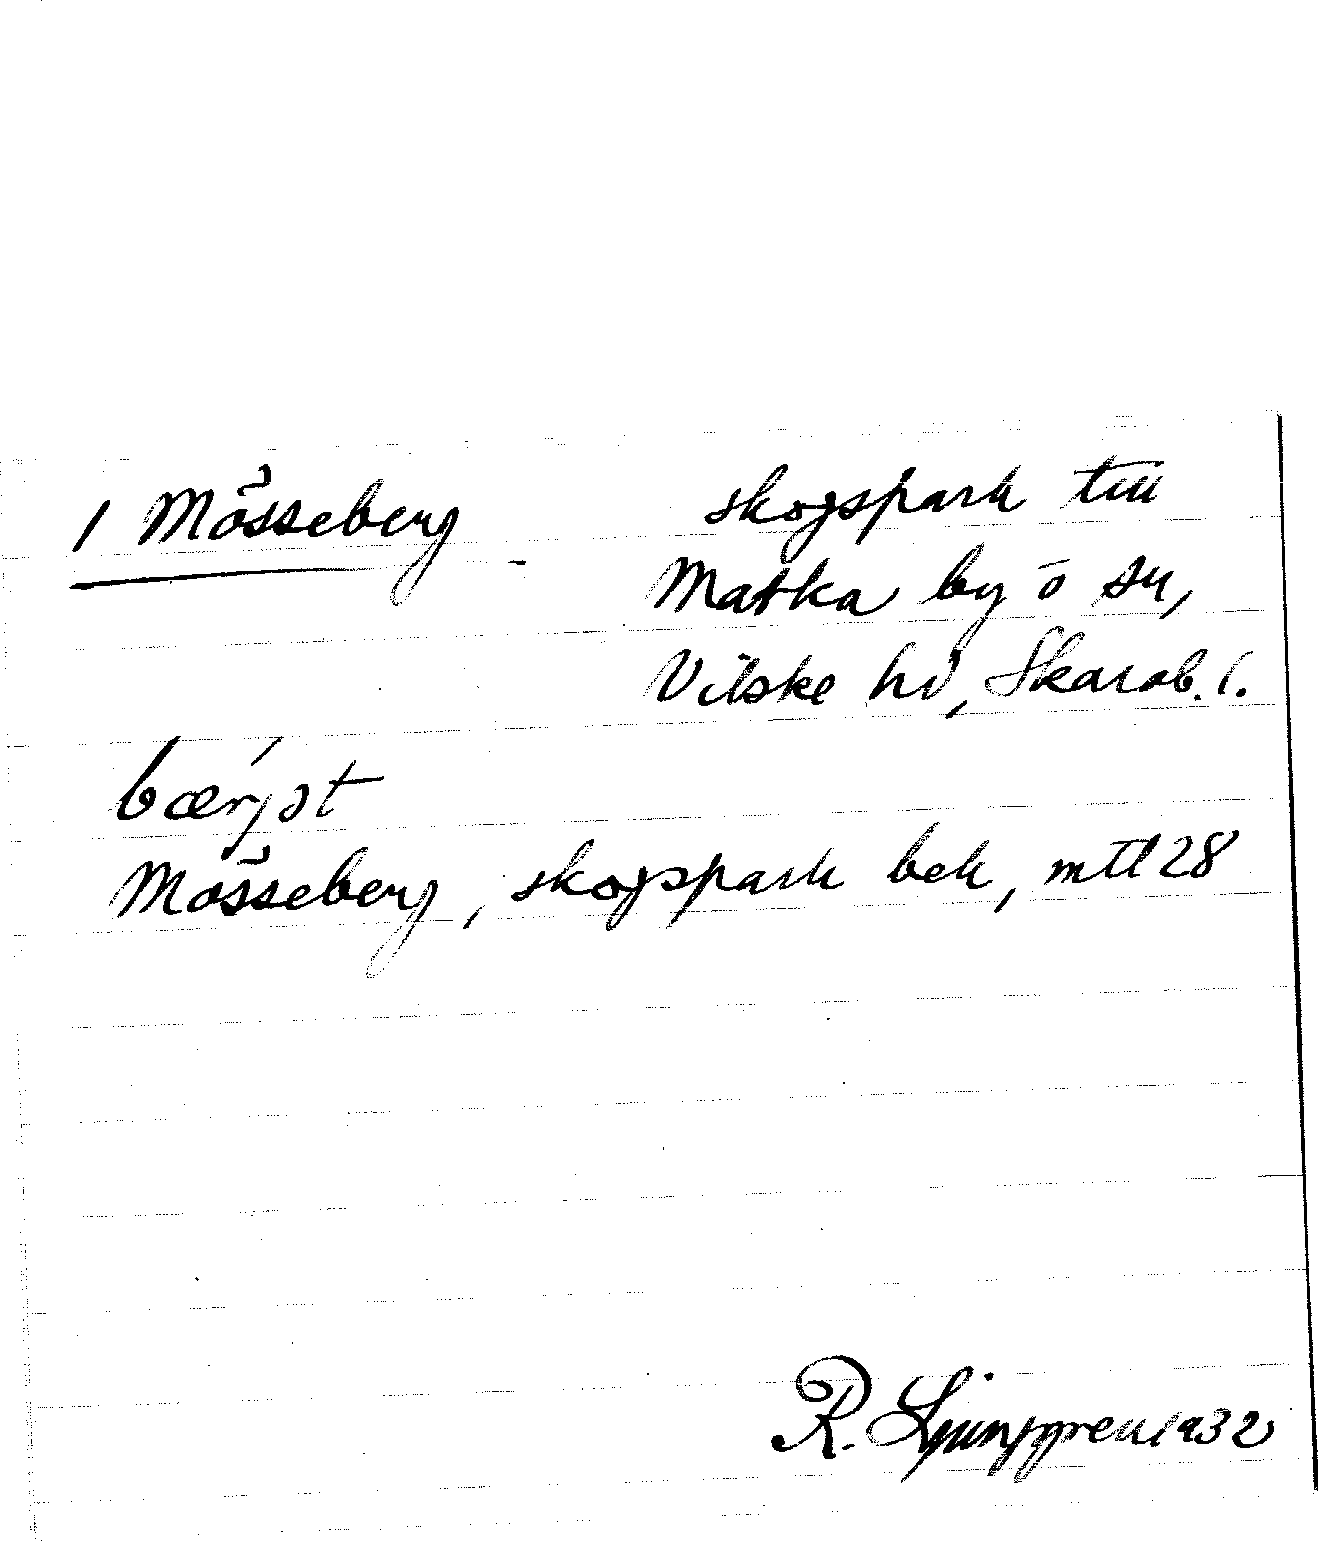 1 Mösseberg
skogspark till
Marka by o sn,
Vilske hd, Skarab. l.
bærjət
Mösseberg, skogspark bek, mtl 28
R. Ljunggren 1932